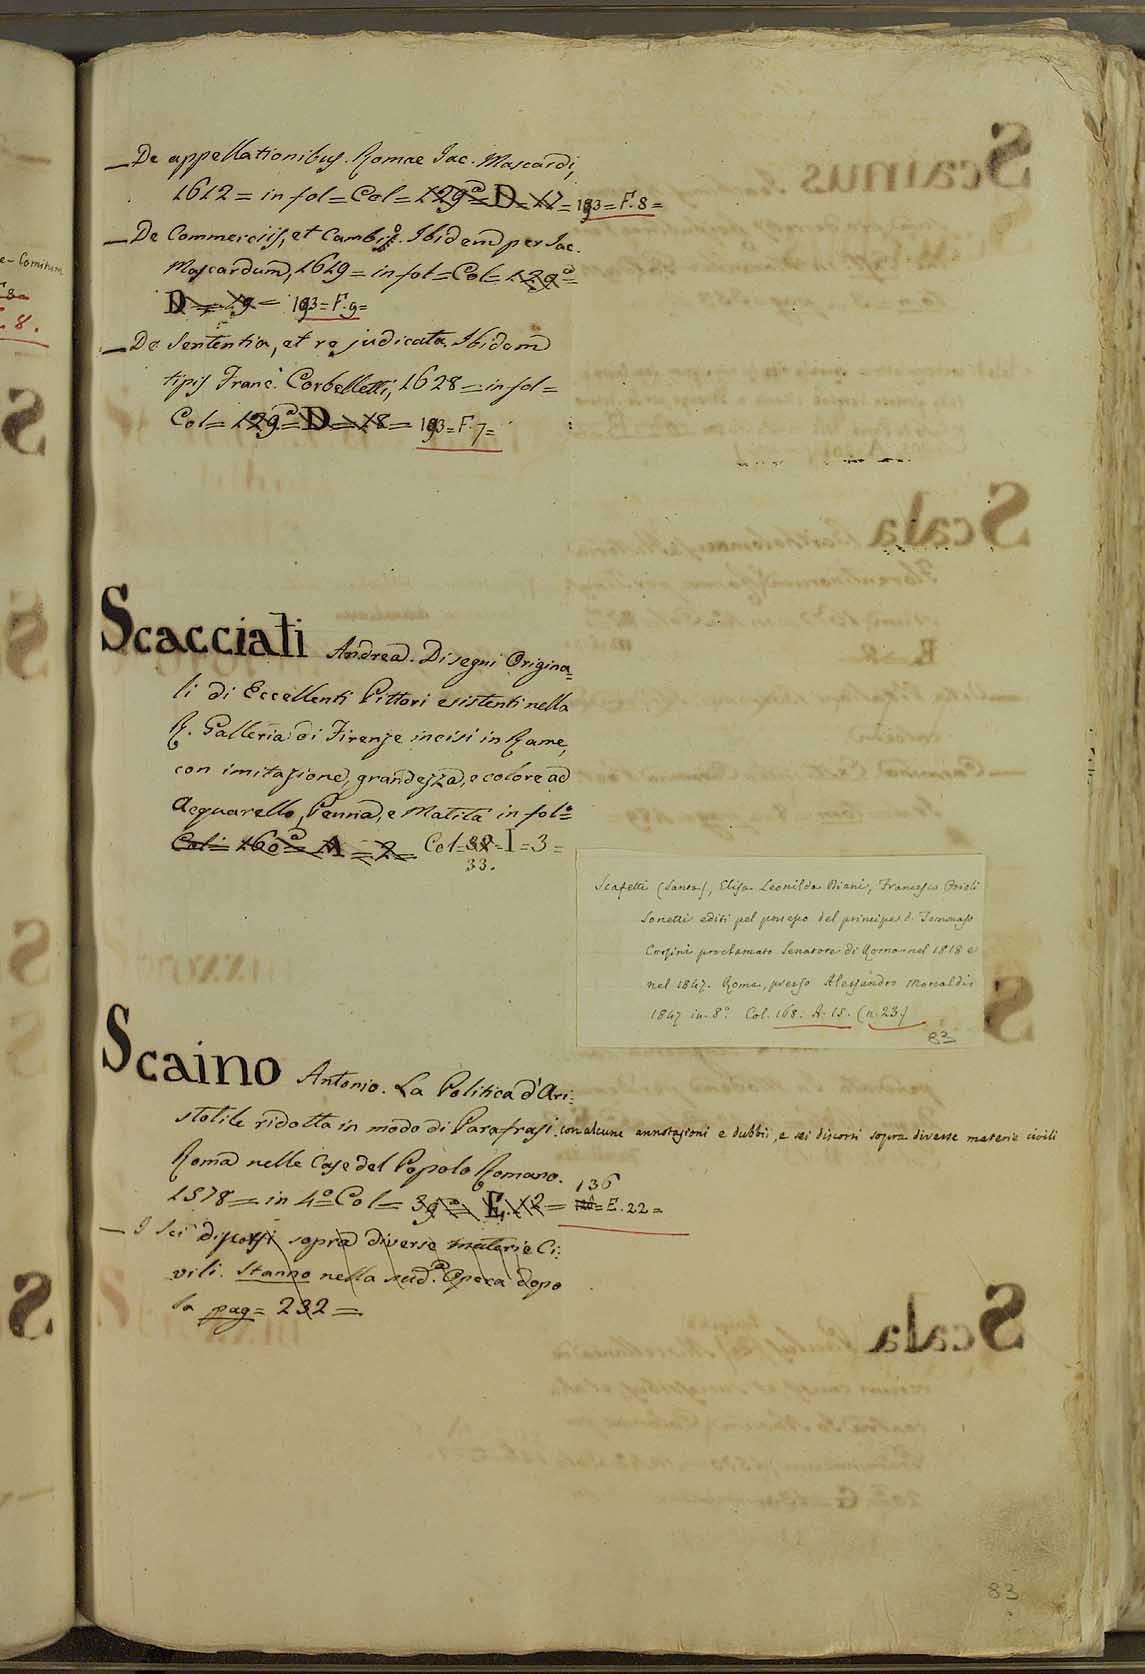 — De appellationibus. Romae Iac. Mascardi,
1612 = in fol = Col = 129ª = D = 17 = 193 = F. 8 =
— De Commerciis, et Cambio. Ibidem per Iac.
Mascardum, 1619 = in fol = Col = 129ª =
D = 19 = 193 = F. 9 =
— De Sententia, et re judicata. Ibidem
tipis Franc. Corbelletti, 1628 = in fol =
Col = 129ª = D = 18 = 193 = F. 7 =
Scacciati Andrea. Disegni Origina=
li di Eccellenti Pittori esistenti nella
R. Galleria di Firenze incisi in Rame,
con imitazione, grandezza, e colore ad
Acquarello, Penna, e Matita in folº =
Col = 160ª = A = 2 = Col = 38 = I = 3 =
33.
Scafetti (Santa), Elisa Leonilda Diani, Francesco Orioli
Sonetti editi pel possesso del principe d. Tommaso
Corsini proclamato Senatore di Roma nel 1818 e
nel 1847. Roma, presso Alessandro Monaldi
1847 in-8º Col. 168. A. 15. (n. 23)
83
Scaino Antonio. La Politica d'Ari:
stotile ridotta in modo di Parafrasi. con alcune annotazioni e dubbii, e sei discorsi sopra diverse materie civili
Roma nelle Case del Popolo Romano.
136
1578 = in 4º Col = 39ª = E. 12 = = E. 22 =
— I sei discorsi sopra diverse materie Ci:
vili. Stanno nella sud.ª Opera dopo
la pag = 232 =
83
e - Comitum
8.
Scainus
Scala
S
Scala